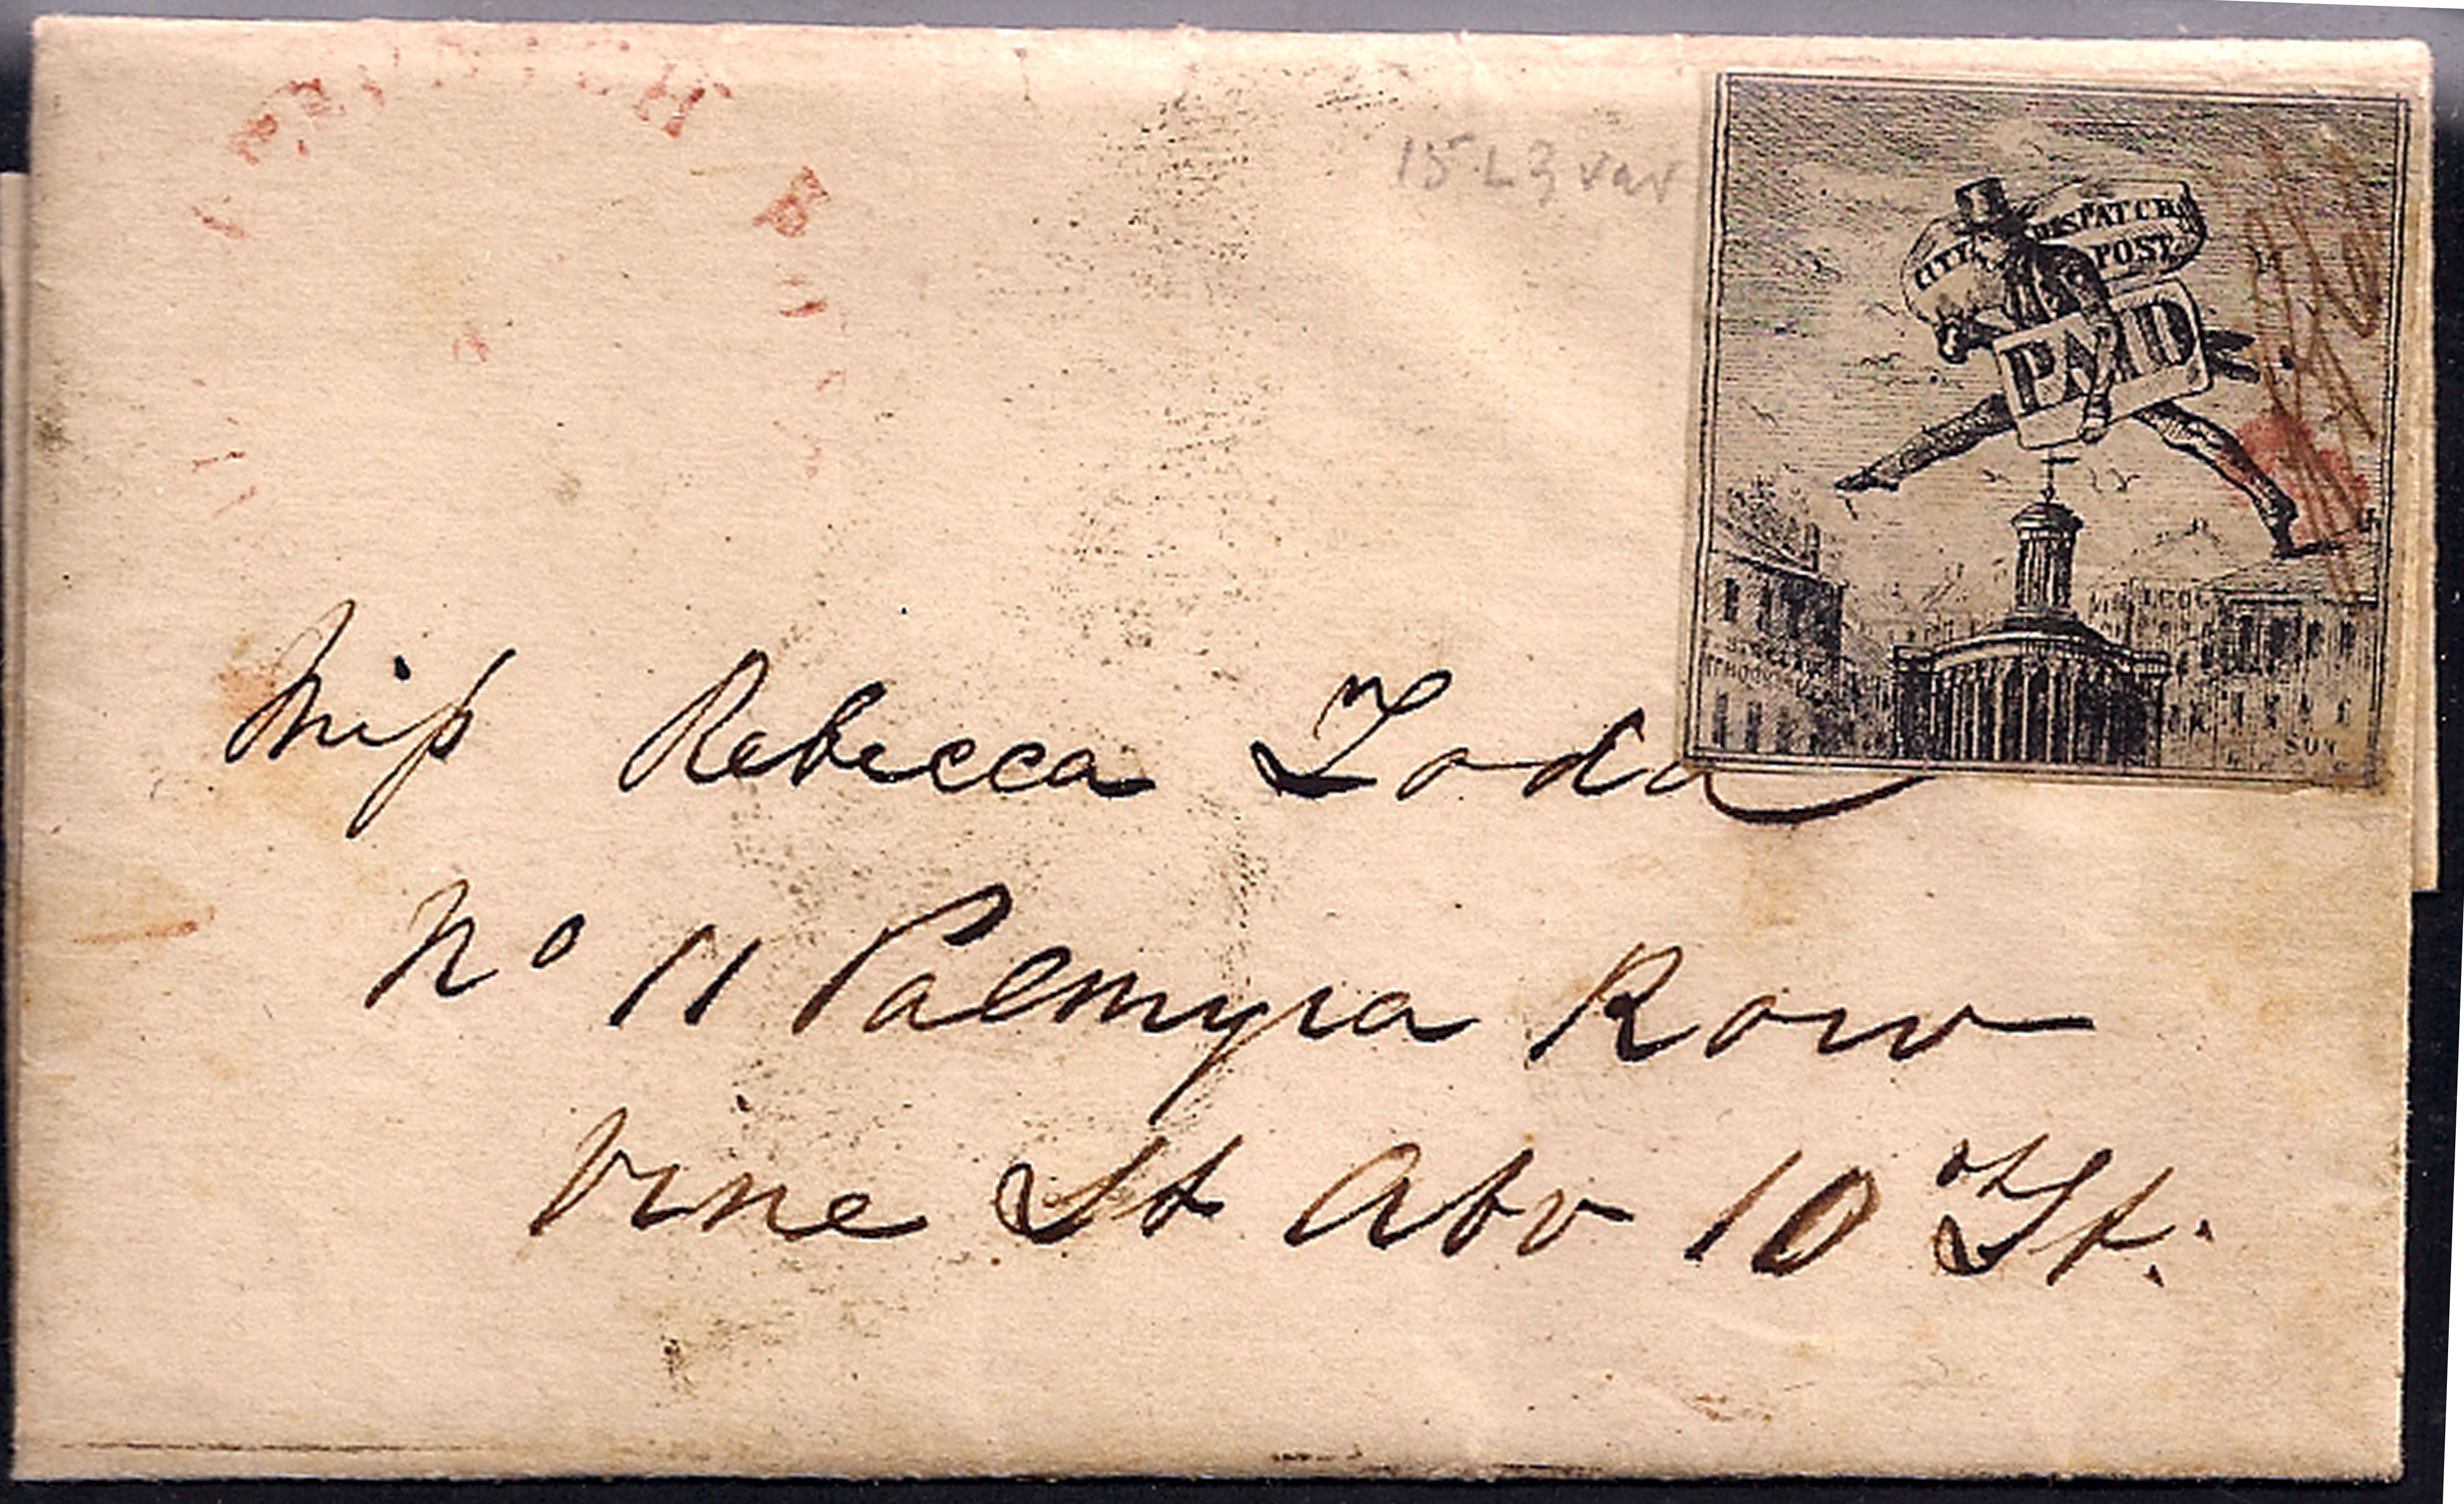 15 L 3 var
CITY DESPATCH
POST
PAID
SUN
Miſs Rebecca Todd
No 11 Palmyra Row
Vine St Abv 10th St.